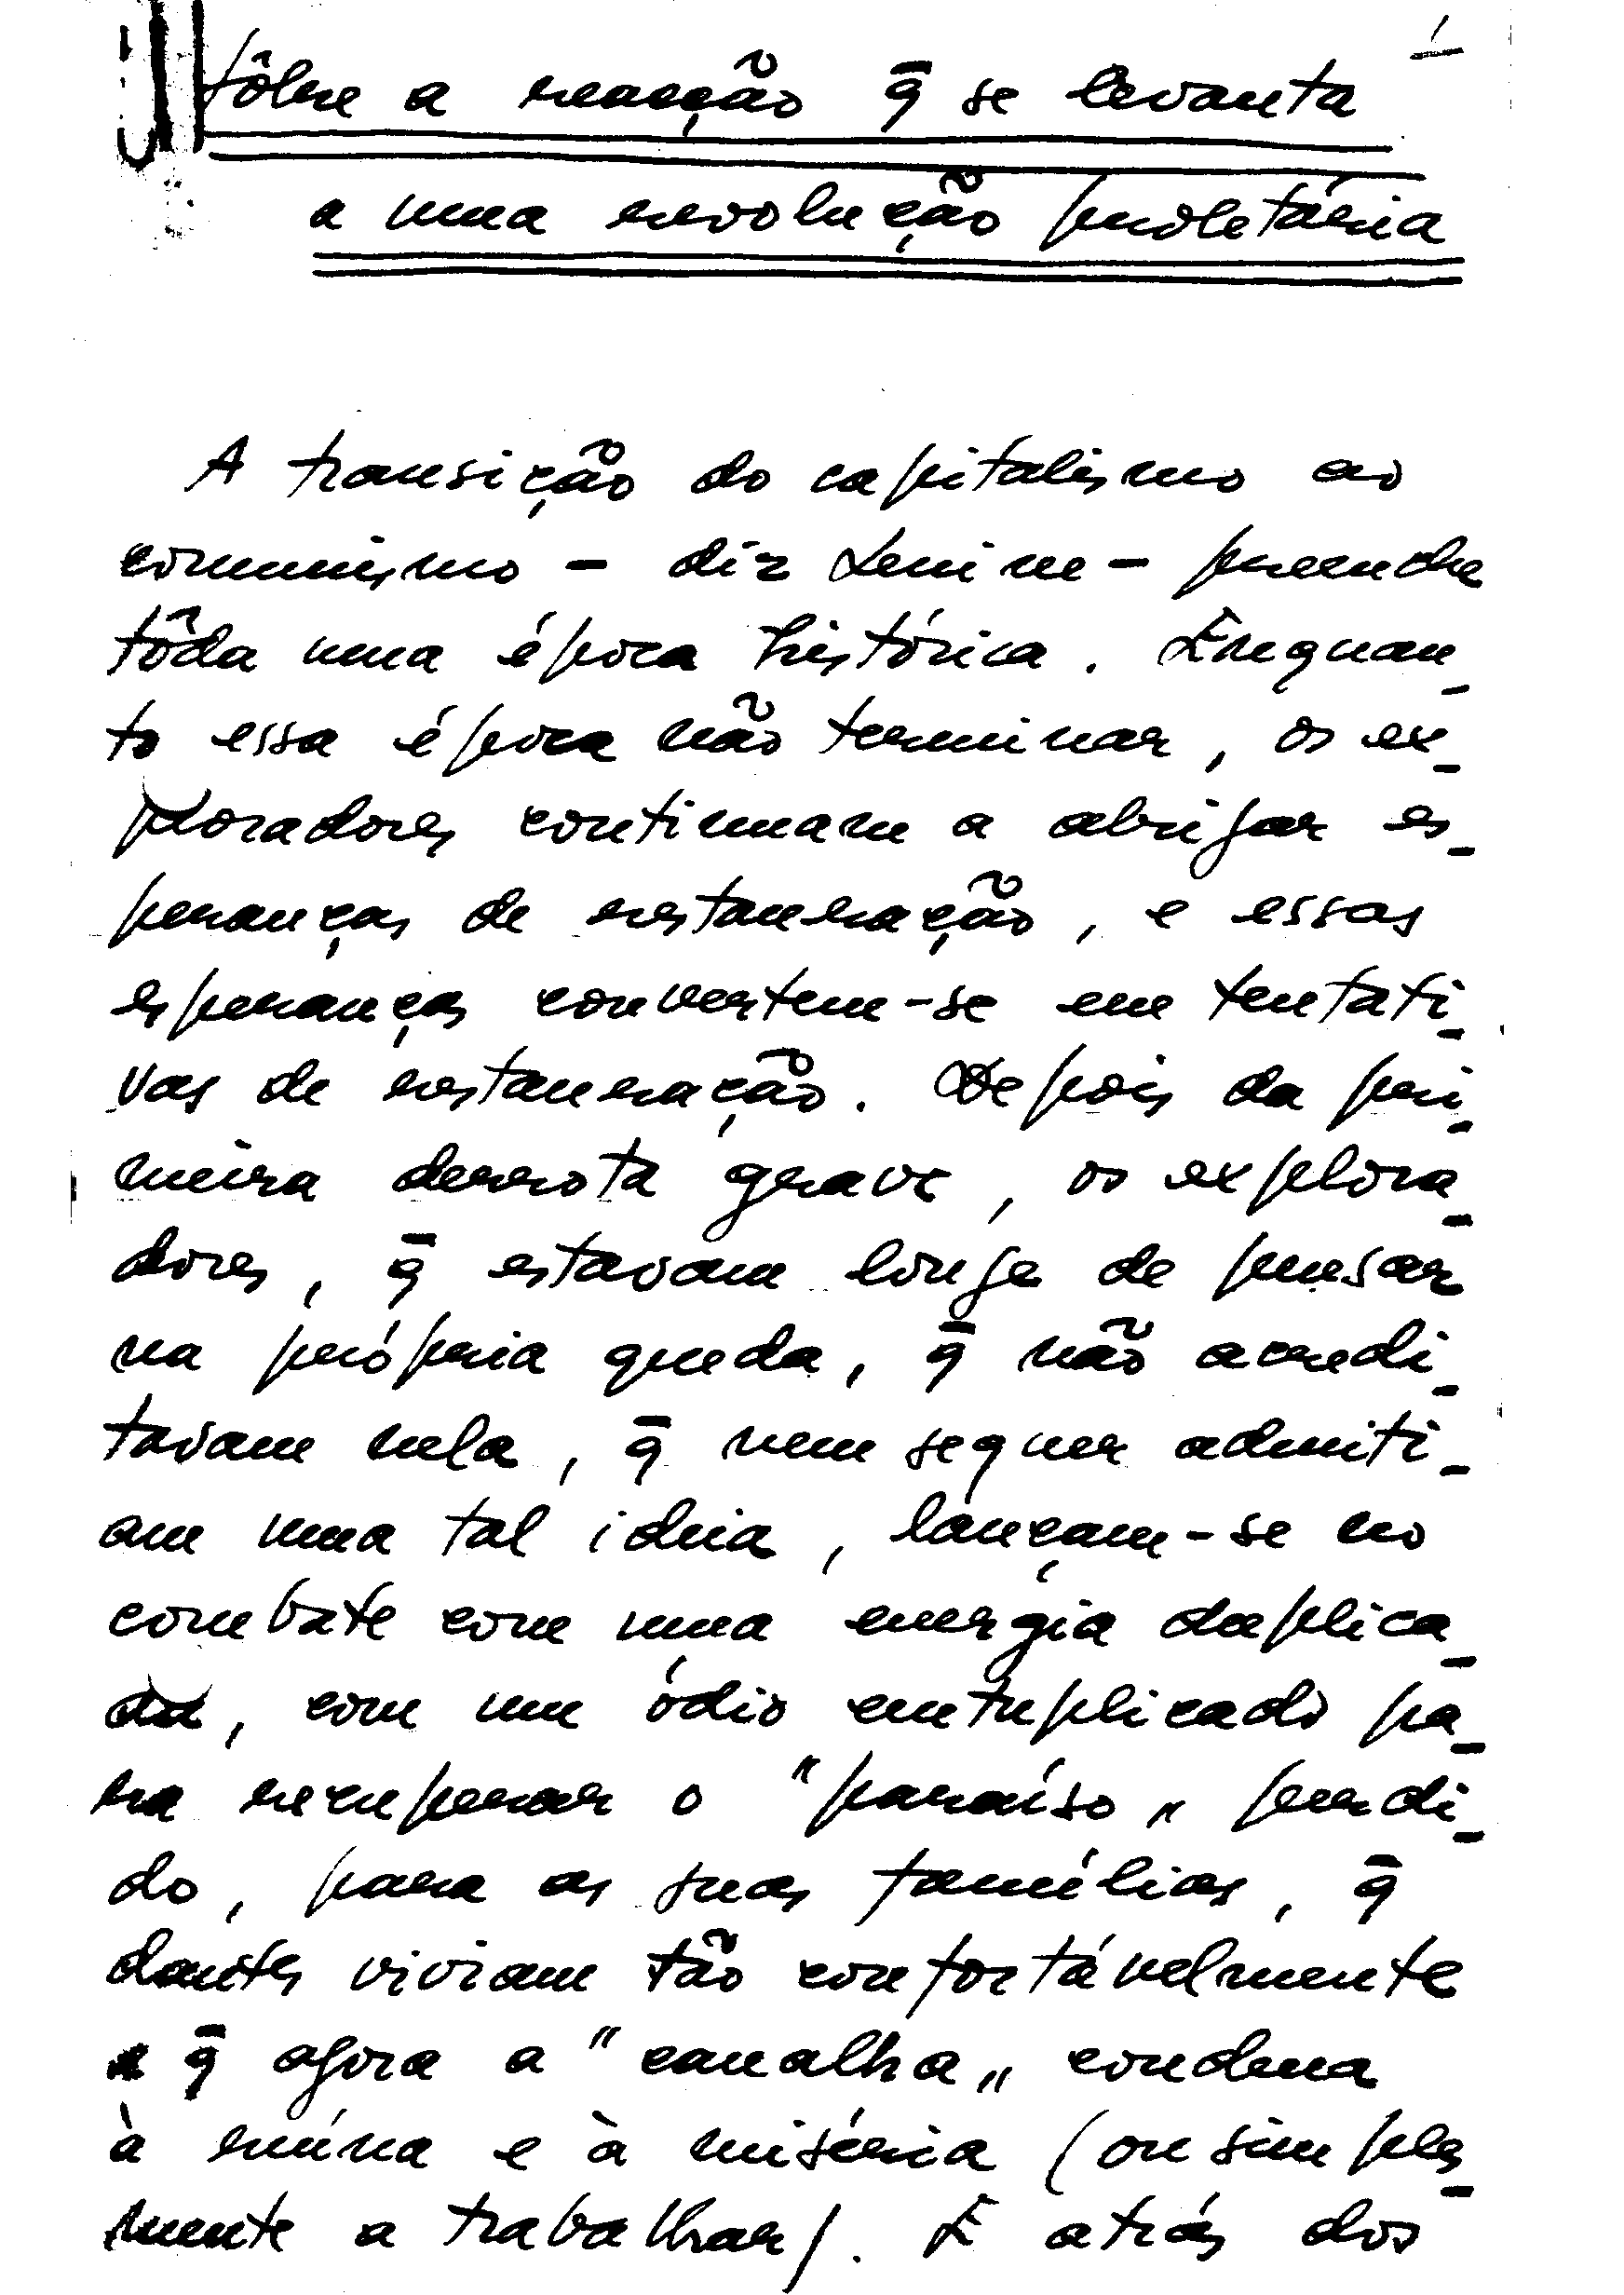 1
Sôbre a reacção q̄ se levanta
a uma revolução proletária
A transição do capitalismo ao
comunismo - diz Lenine - preenche
tôda uma época histórica. Enquan-
to essa época não terminar, os ex-
ploradores continuam a abrigar es-
peranças de restauração, e essas
esperanças convertem-se em tentati-
vas de restauração. Depois da pri-
meira derrota grave, os explora-
dores, q̄ estavam longe de pensar
na própria queda, q̄ não acredi-
tavam nela, q̄ nem sequer admiti-
am uma tal ideia, lançam-se no
combate com uma energia duplica-
da, com um ódio centuplicado pa-
ra recuperar o "paraíso" perdi-
do, para as suas famílias, q̄
dantes viviam tão confortávelmente
e q̄ agora a "canalha" condena
à ruína e à miséria (ou simples-
mente a trabalhar). E atrás dos